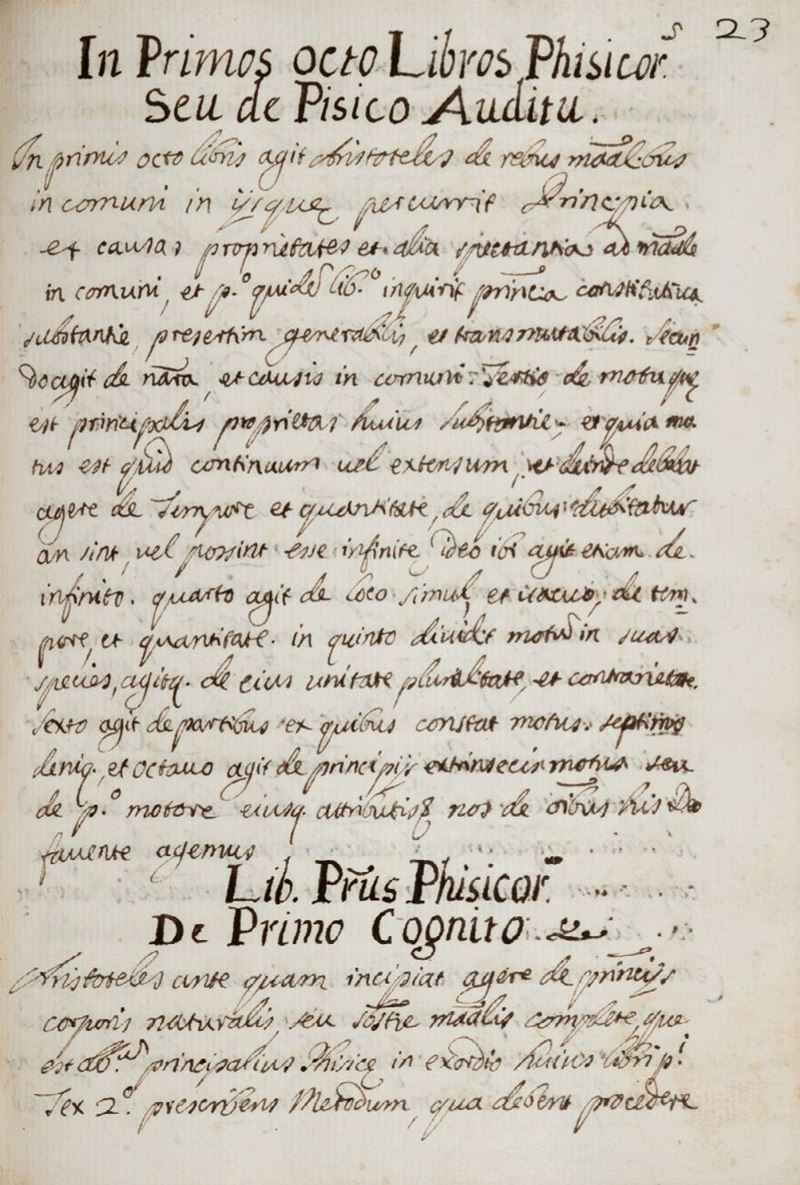 23
In Primos octo Libros Phisicor.s
Seu de Pisico Auditu.
In primis octo libris agit Aristoteles de rebus maãlibus
in comuni in ijsque percurrit Principia
et causas proprietates et alia spectantia ad maãle
in comuni, et p.º quidẽ lib.º inquirit princia constitutiva
substantie, presertim generabilis, et transmutabilis. Secun
do agit de nãra, et causis in comuni. Tertio de motu quę
est principalis proprietas huius substantie, et quia mo
tus est quid continuum vel extensum, et deinde debebat
agere de Tempore et quantitate, de quibus dubitatur
an sint, vel possint esse infinite, ideo ibi agit etiam de
infinito. quarto agit de loco simul, et vacuo, de tem
pore, et quantitate. in quinto dividit motũ in suas
species, agitq. de eius unitate pluralitate, et contrarietate.
Sexto agit de partibus ex quibus constat motus. septimo
deniq. et octavo agit de principijs extrinsecis motus seu
de p.º motore eiusq. attributis nos de oĩbus his Deo
favente agemus
Lib. Prũs Phisicor.
De Primo Cognito
Aristoteles ante quam incipiat agere de princijs
corporis naturalis, seu sõstie maãlis complete, que
est principalius Phisicę in exordio huius libri p.i
Tex 2º. prescribens Metodum, qua debent procedere